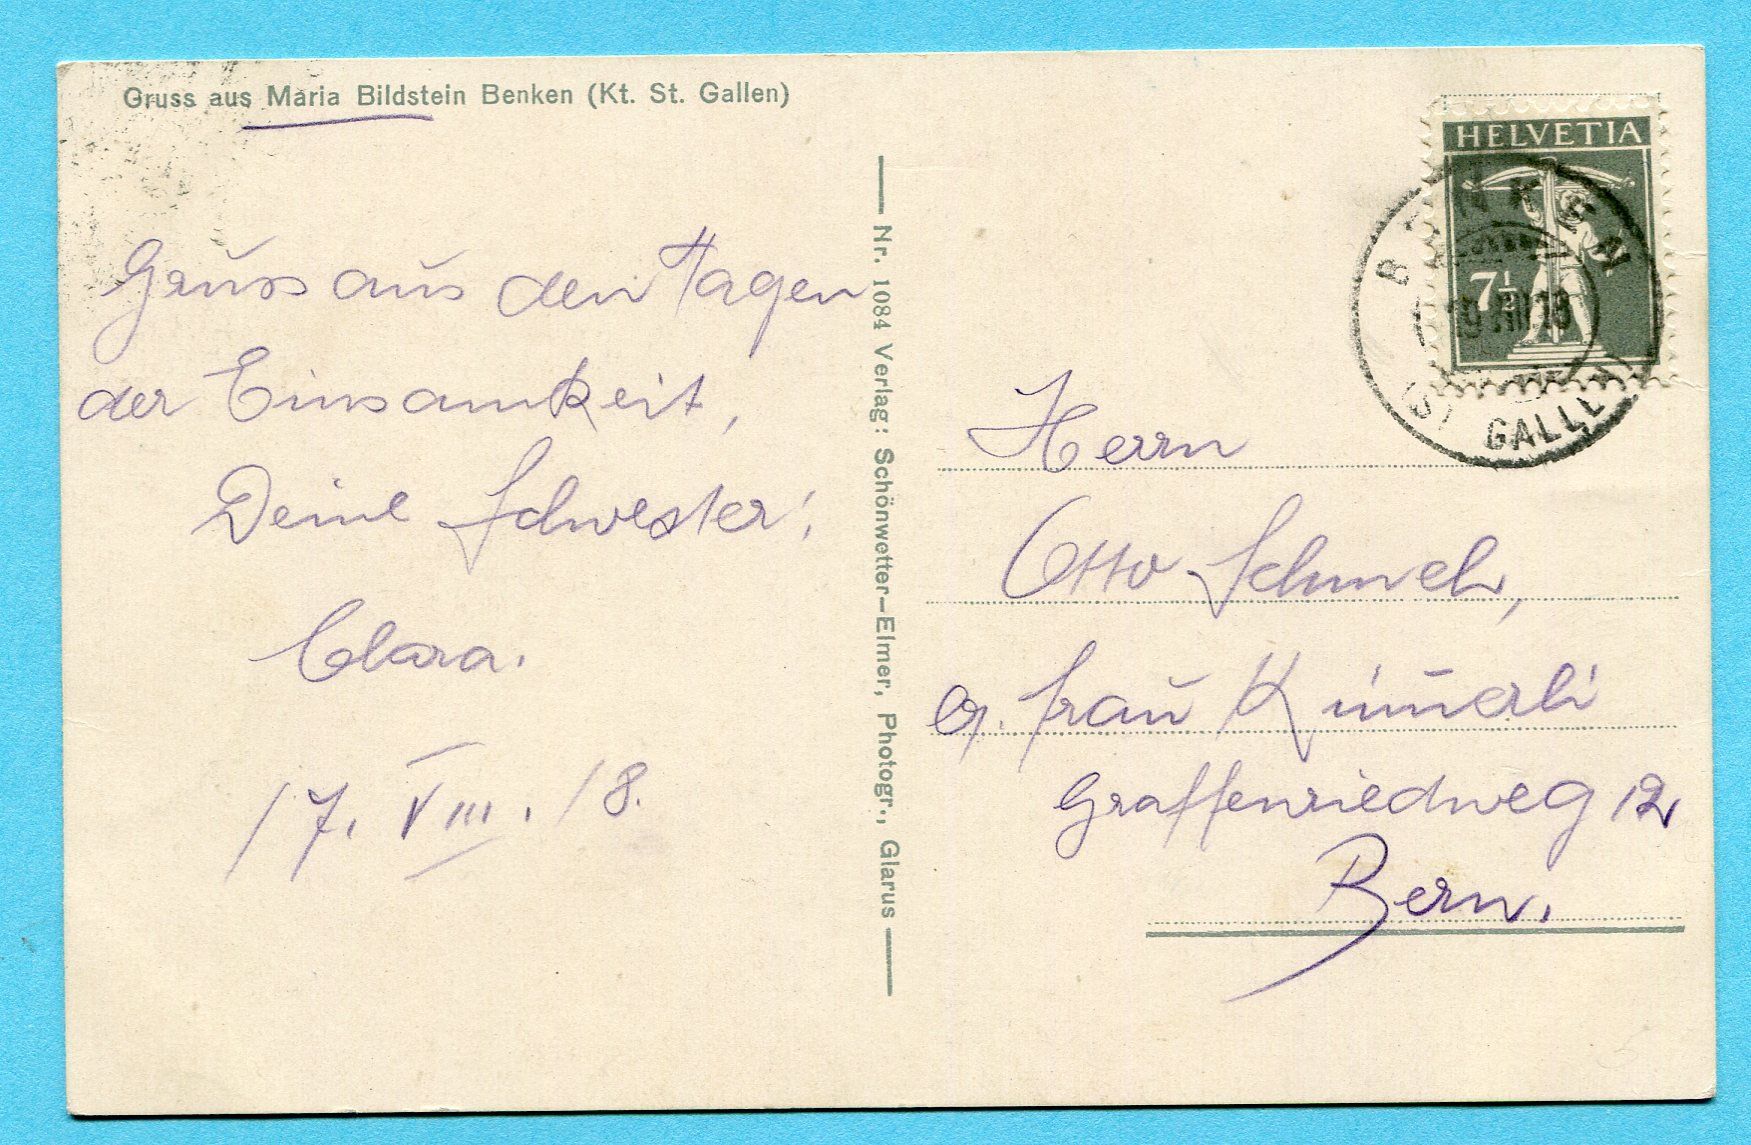 Gruss aus Maria Bildstein Benken (Kt. St. Gallen)
Gruss aus den Tagen
der Einsamkeit,
Deine Schwester!
Clara.
17. VIII. 18.
Nr. 1084 Verlag: Schönwetter-Elmer, Photogr., Glarus
HELVETIA
7½
BENKEN
19 VIII 18
(ST GALLEN)
Herrn
Otto Schmch,
Frau Kümerli
Graffenriedweg 12
Bern.